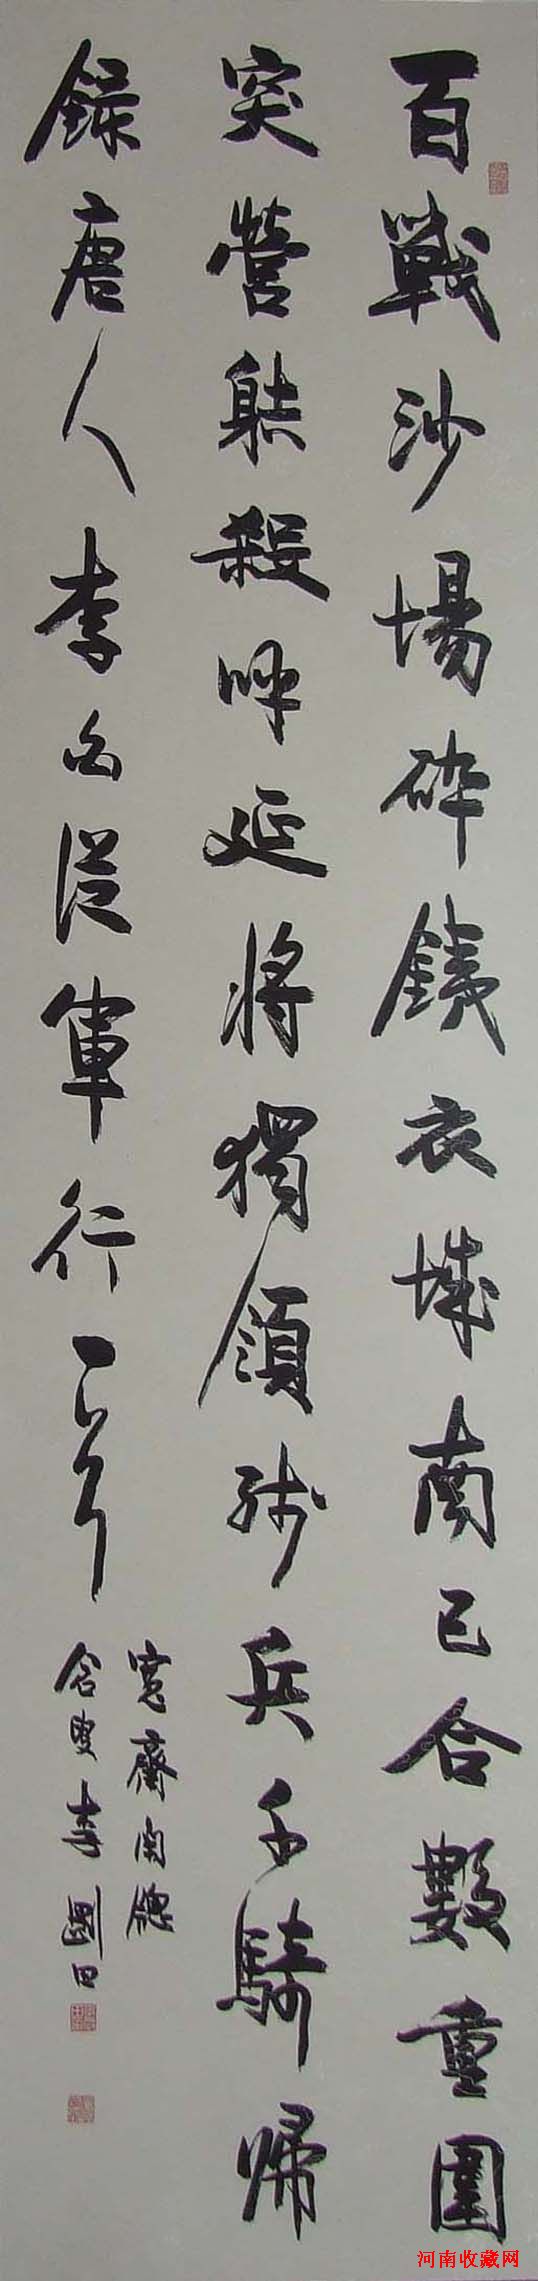 百戰沙場碎鐵衣城南已合數重圍
突營躲殺呼延將獨領殘兵千騎歸
錄唐人李白從軍行一首
寬齋南窗
含叟李剛田
河南收藏网